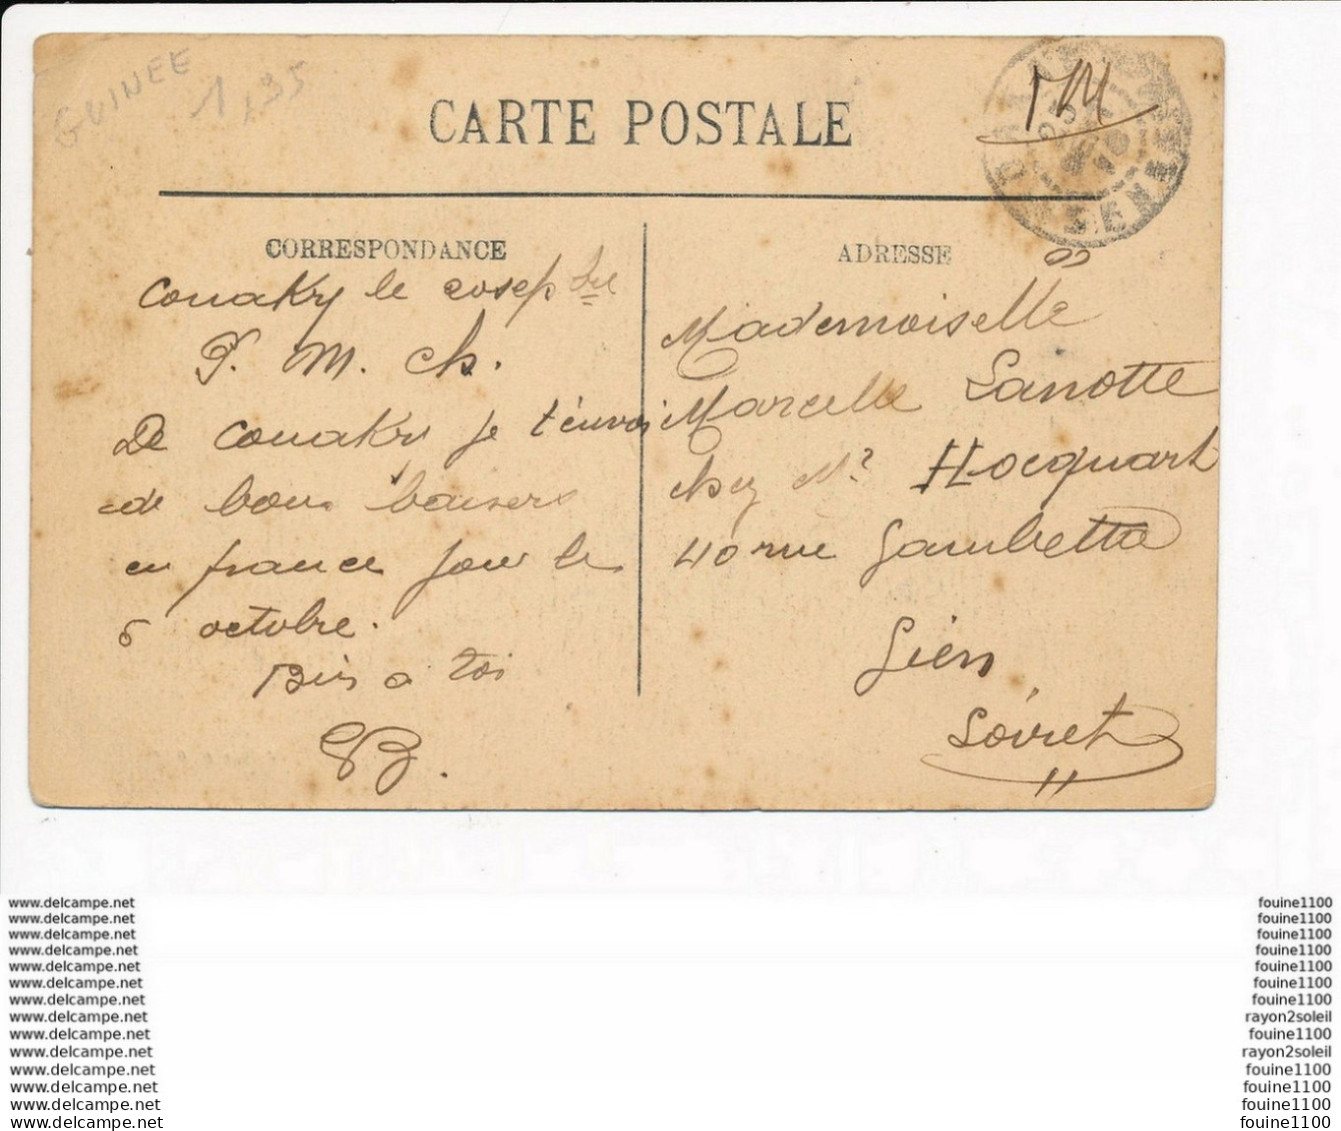 GUINEE
1,35
CARTE POSTALE
TM
CORRESPONDANCE
Conakry le 20 sep bre
P. M. ch.
De Conakry je t'envoi
de bons baisers
en france pour le
6 octobre.
Bien a toi
GB.
ADRESSE
Mademoiselle
Marcelle Lanotte
chez Mr Hocquart
40 rue Gambetta
Gien
Loiret
www.delcampe.net
www.delcampe.net
www.delcampe.net
www.delcampe.net
www.delcampe.net
www.delcampe.net
www.delcampe.net
www.delcampe.net
www.delcampe.net
www.delcampe.net
www.delcampe.net
www.delcampe.net
www.delcampe.net
www.delcampe.net
fouine1100
fouine1100
fouine1100
fouine1100
fouine1100
fouine1100
fouine1100
rayon2soleil
fouine1100
rayon2soleil
fouine1100
fouine1100
fouine1100
fouine1100